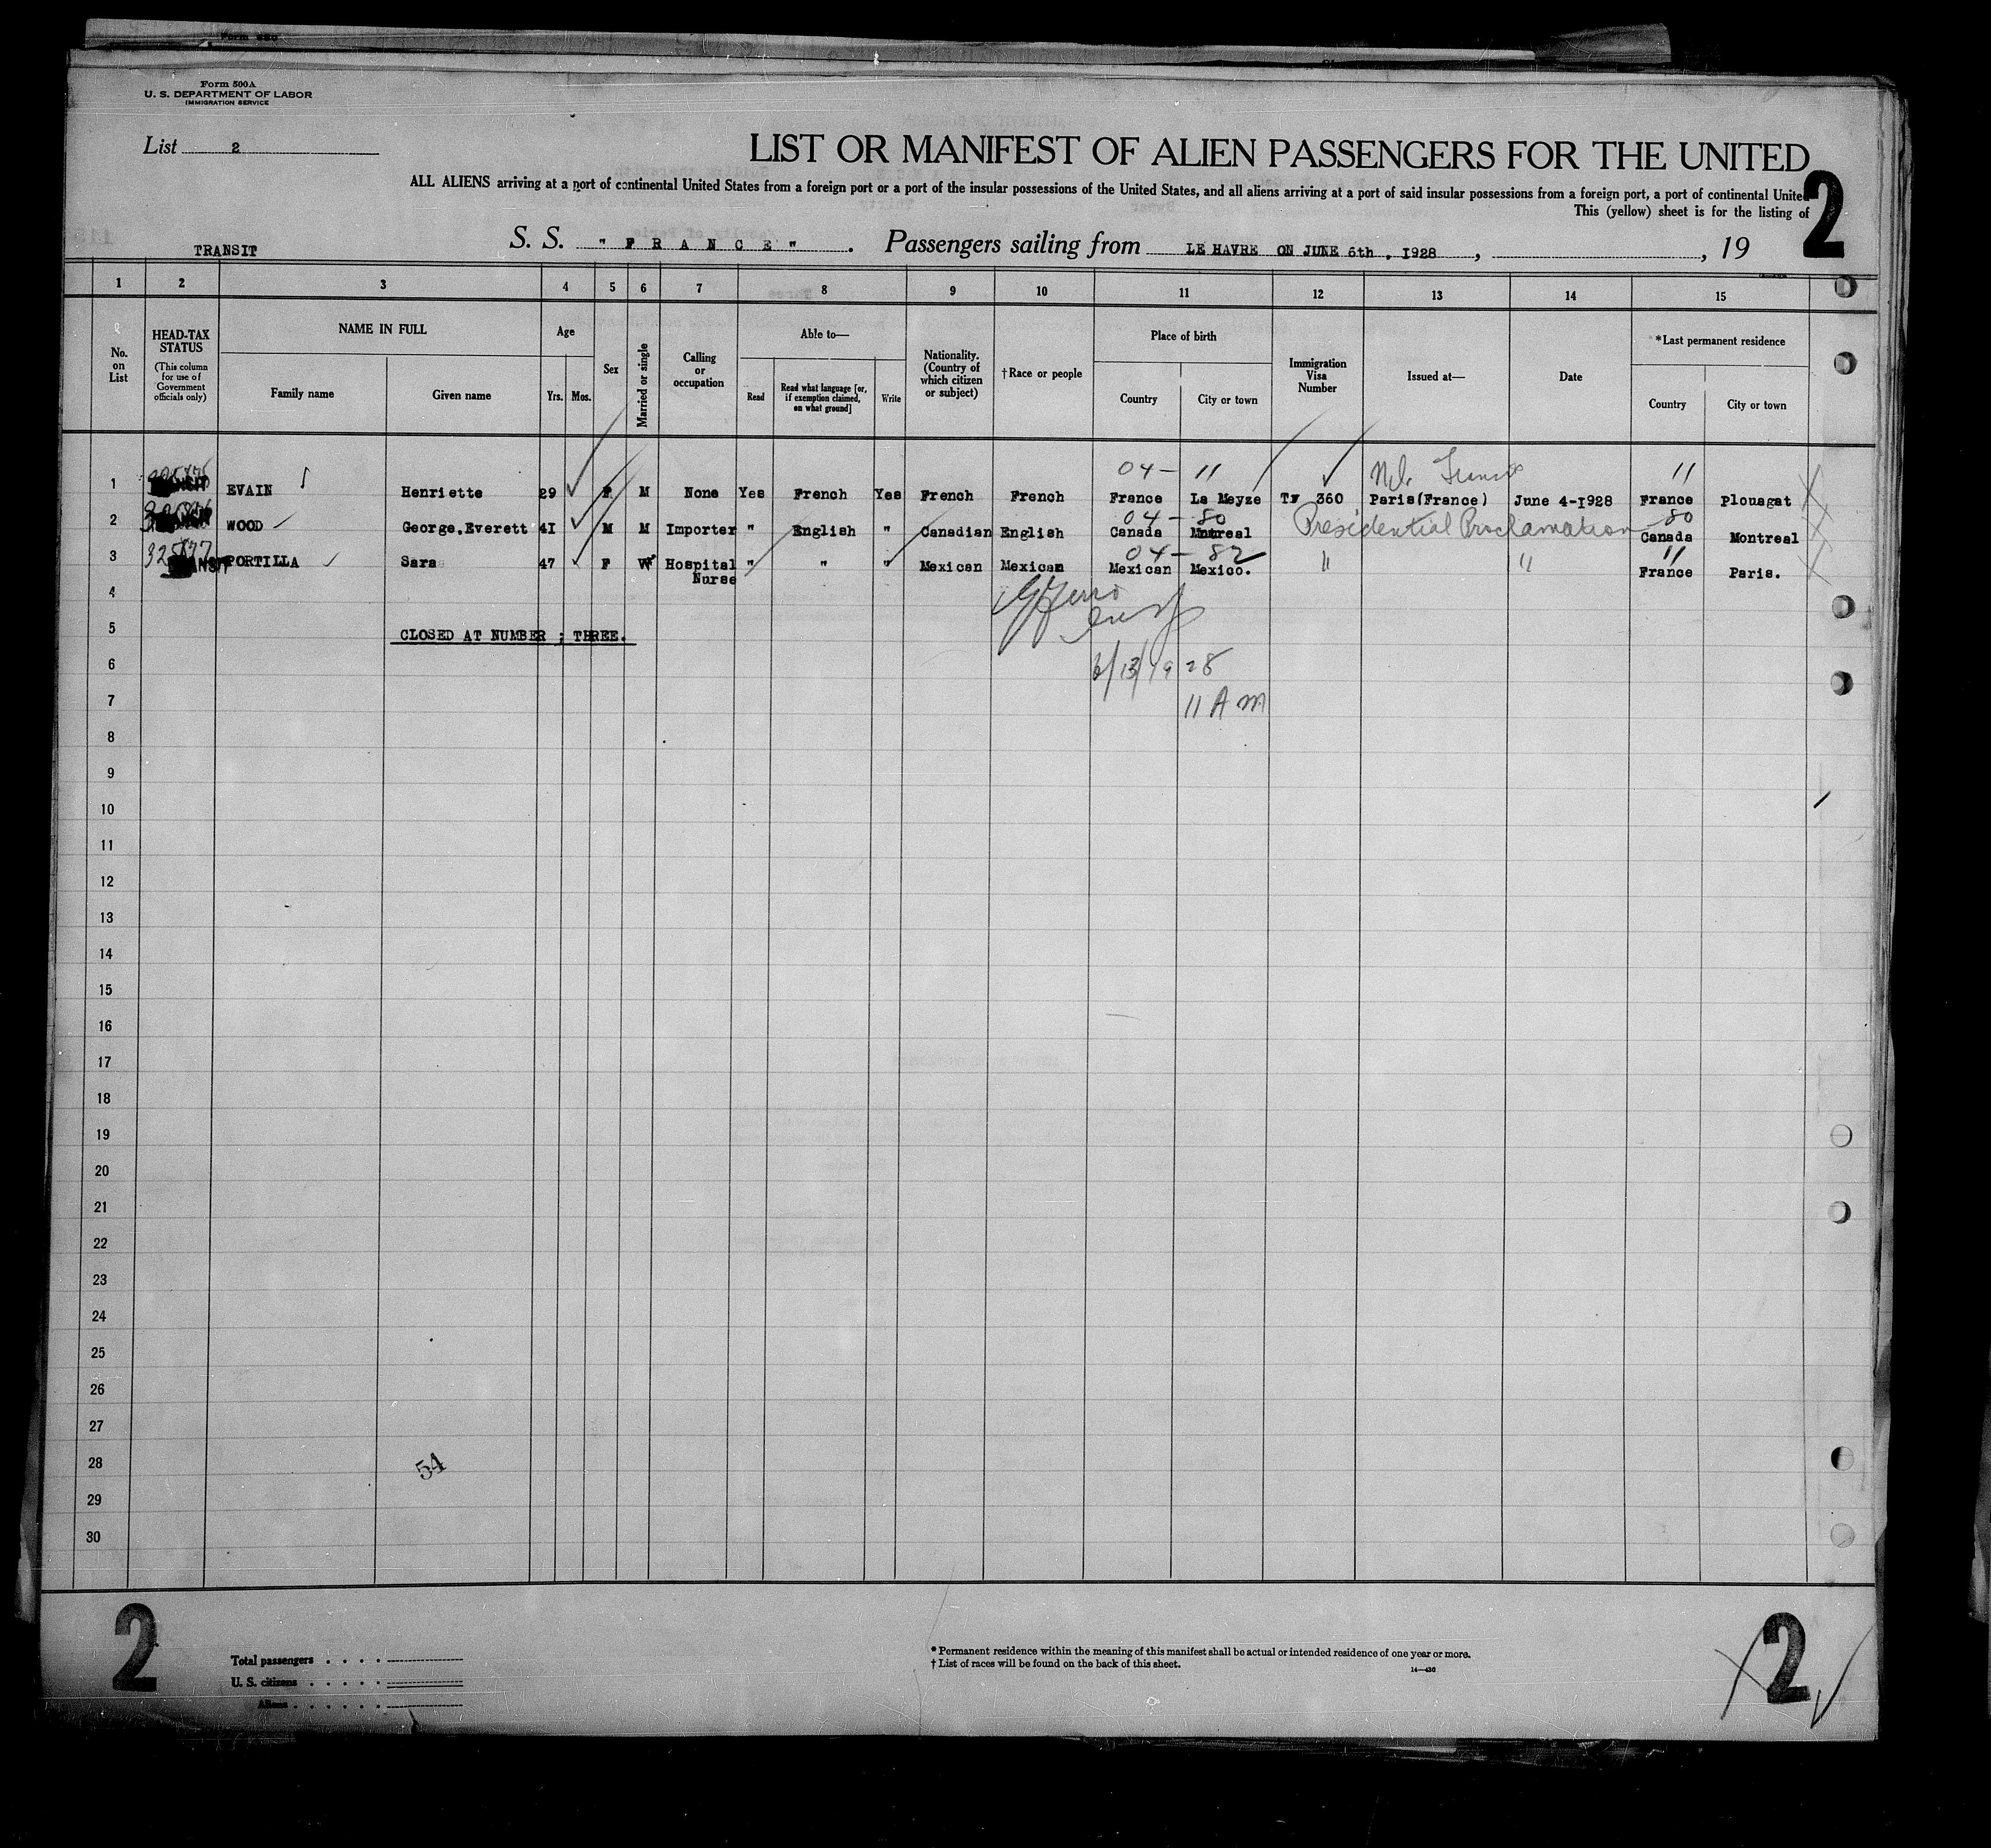 Form 500A
U. S. DEPARTMENT OF LABOR
IMMIGRATION SERVICE
List 2
LIST OR MANIFEST OF ALIEN PASSENGERS FOR THE UNITED
ALL ALIENS arriving at a port of continental United States from a foreign port or a port of the insular possessions of the United States, and all aliens arriving at a port of said insular possessions from a foreign port, a port of continental United
This (yellow) sheet is for the listing of
2
TRANSIT
S. S. "FRANCE". Passengers sailing from LE HAVRE ON JUNE 6th, 1928, , 19
1 2 3 4 5 6 7 8 9 10 11 12 13 14 15
No. on List
HEAD-TAX STATUS (This column for use of Government officials only)
NAME IN FULL
Family name Given name
Age
Yrs. Mos.
Sex
Married or single
Calling or occupation
Able to—
Read
Read what language [or, if exemption claimed, on what ground]
Write
Nationality. (Country of which citizen or subject)
†Race or people
Place of birth
Country City or town
Immigration Visa Number
Issued at—
Date
*Last permanent residence
Country City or town
04 - 11 11
1 EVAIN Henriette 29 F M None Yes French Yes French French France La Meyze Tr 360 Paris(France) June 4-1928 France Plouagat
04 - 80 Presidential Proclamation 80
2 WOOD George.Everett 41 M M Importer " English " Canadian English Canada Montreal Canada Montreal
04 - 82 11
3 PORTILLA Sara 47 F W Hospital Nurse " " " Mexican Mexican Mexican Mexico. " " France Paris.
4
5 CLOSED AT NUMBER ; THREE.
6 6/13/1928
7 11 AM
8
9
10
11
12
13
14
15
16
17
18
19
20
21
22
23
24
25
26
27
28 54
29
30
2
Total passengers . . . .
U. S. citizens . . . . .
Aliens . . . . . .
* Permanent residence within the meaning of this manifest shall be actual or intended residence of one year or more.
† List of races will be found on the back of this sheet.
14—430
2